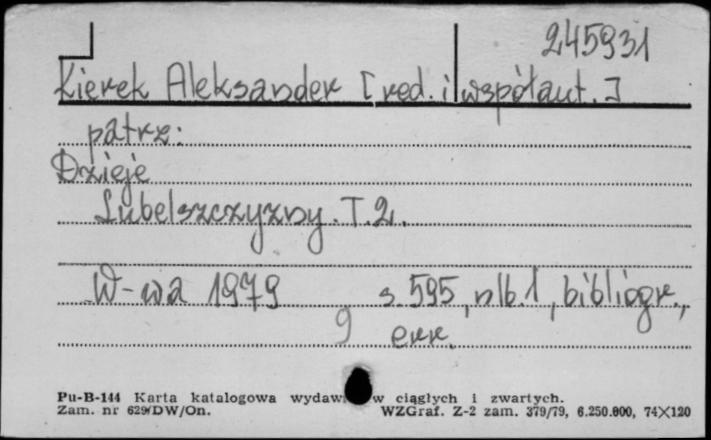 245931
Kierek Aleksander [red. i współaut.]
patrz:
Dzieje
Lubelszczyzny. T.2.
W-wa 1979 s. 595, nlb. 1, bibliogr.,
9 err.
Pu-B-144 Karta katalogowa wydaw w ciągłych i zwartych.
Zam. nr 629/DW/On. WZGraf. Z-2 zam. 379/79, 6.250.000, 74×120